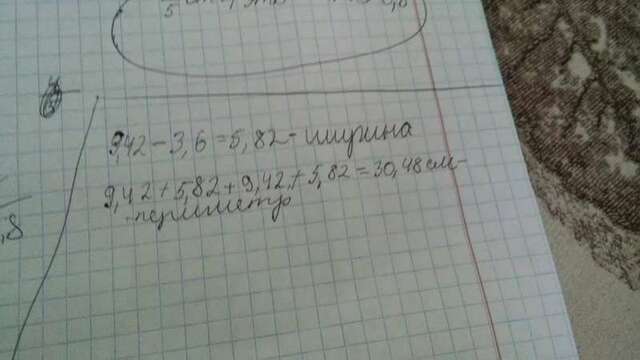 9,42 - 3,6 = 5,82 - ширина
9,42 + 5,82 + 9,42 + 5,82 = 30,48 см -
- периметр
,8